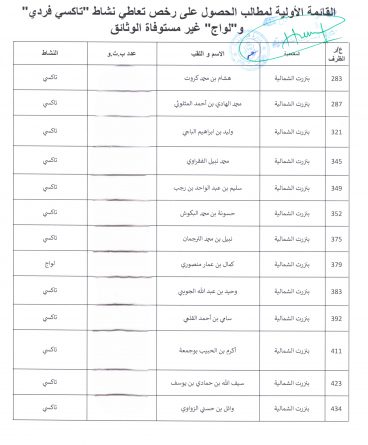 القائمة الأولية لمطالب الحصول على رخص تعاطي نشاط "تاكسي فردي"
و"لواج" غير مستوفاة الوثائق
ع/ر الظرف المعتمدية الاسم و اللقب عدد ب.ت.و النشاط
283 بنزرت الشمالية هشام بن محمد كروت تاكسي
287 بنزرت الشمالية محمد الهادي بن أحمد المثلوثي تاكسي
321 بنزرت الشمالية وليد بن ابراهيم الباجي تاكسي
345 بنزرت الشمالية محمد نبيل الفقراوي تاكسي
349 بنزرت الشمالية سليم بن عبد الواحد بن رجب تاكسي
352 بنزرت الشمالية حسونة بن محمد البكوش تاكسي
375 بنزرت الشمالية نبيل بن محمد الترجمان تاكسي
379 بنزرت الشمالية كمال بن عمار منصوري لواج
383 بنزرت الشمالية وحيد بن عبد الله الجويني تاكسي
392 بنزرت الشمالية سامي بن أحمد القلعي تاكسي
411 بنزرت الشمالية أكرم بن الحبيب بوجمعة تاكسي
423 بنزرت الشمالية سيف الله بن حمادي بن يوسف تاكسي
434 بنزرت الشمالية وائل بن حسني الزواوي تاكسي